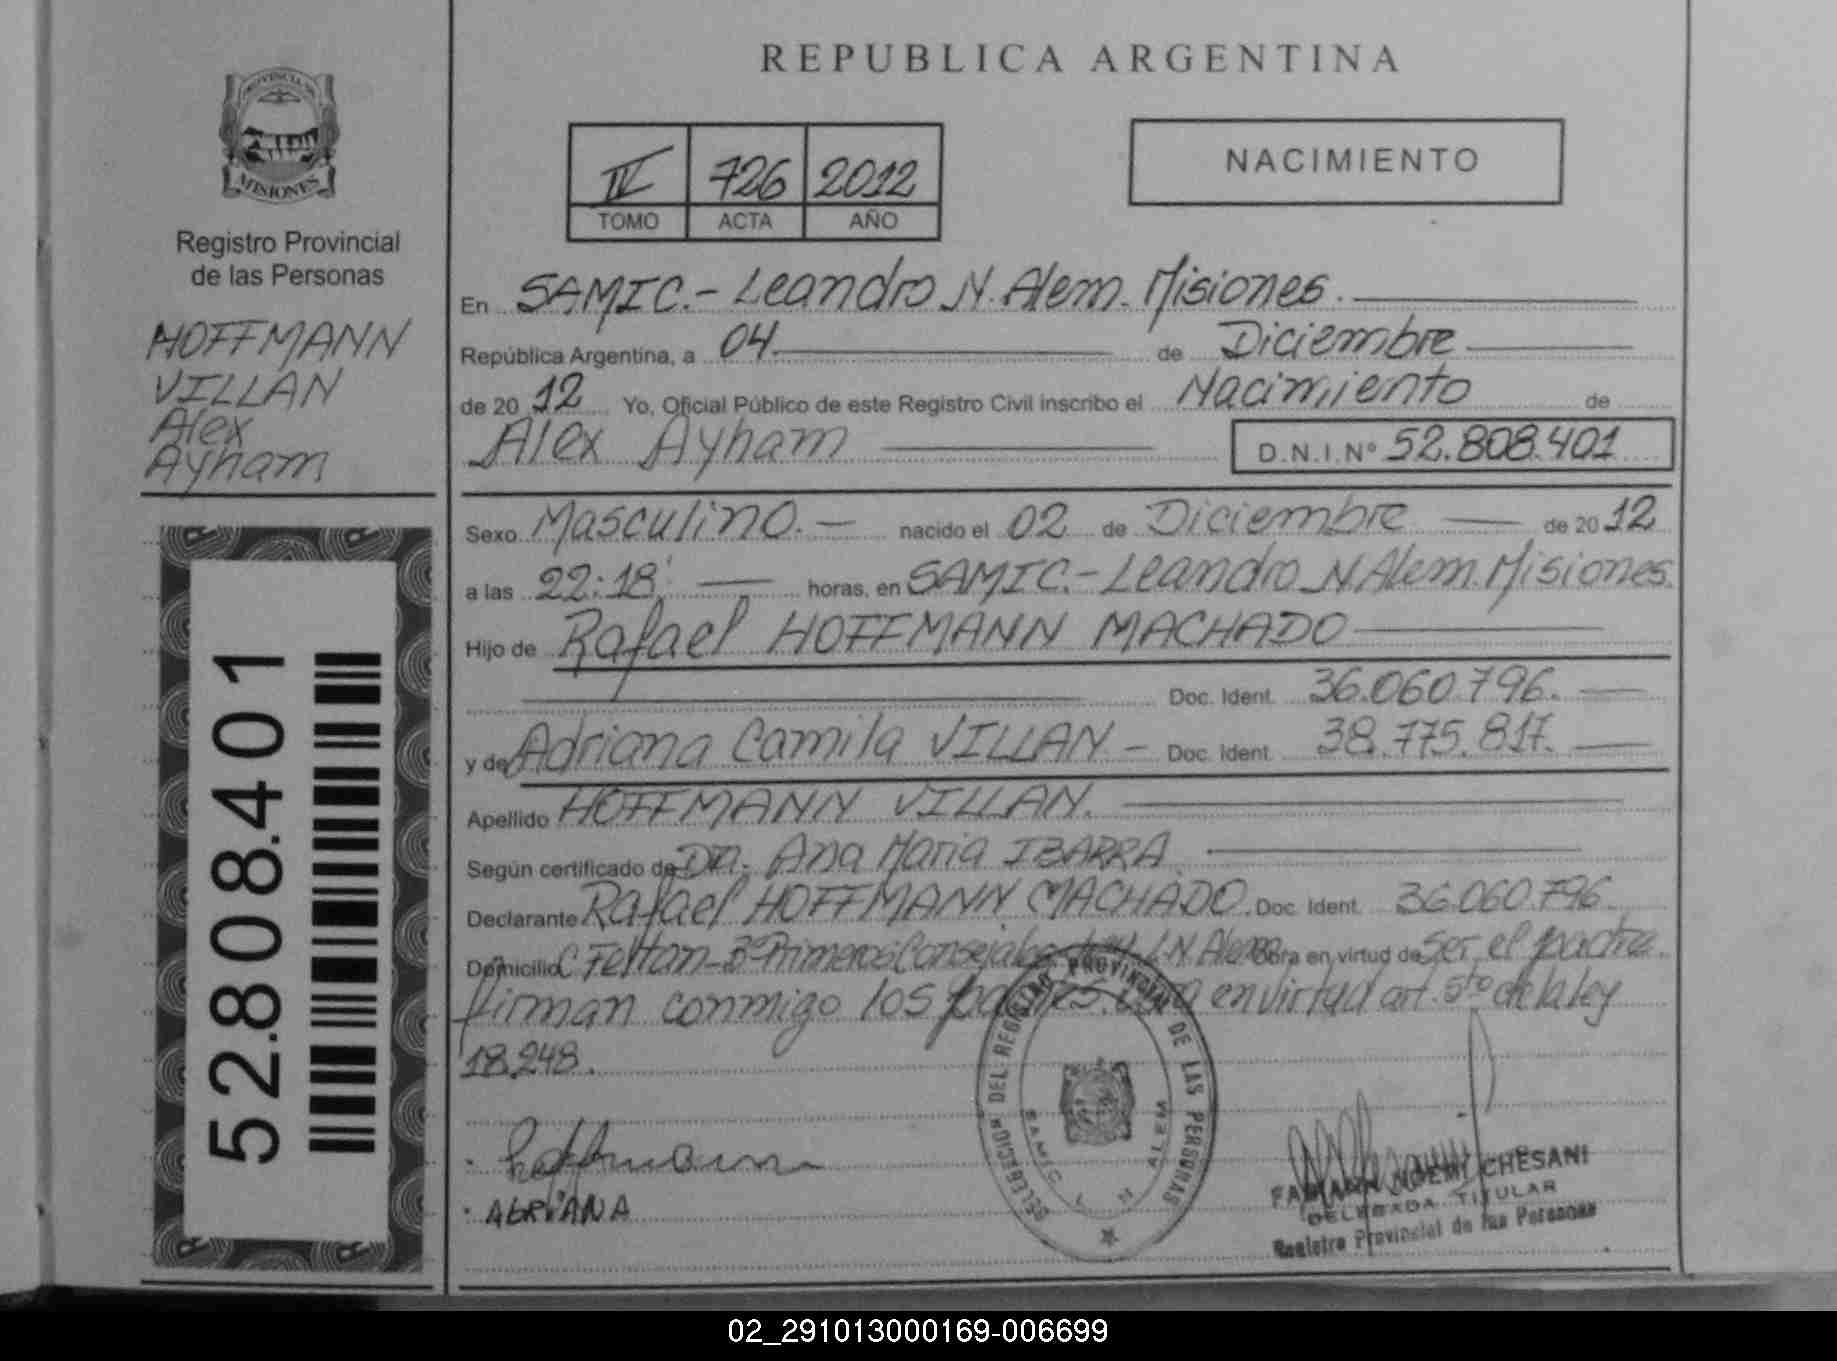 REPUBLICA ARGENTINA
PROVINCIA DE
MISIONES
Registro Provincial
de las Personas
HOFFMANN
VILLAN
Alex
Ayham
52.808.401
IV 726 2012
TOMO ACTA AÑO
NACIMIENTO
En SAMIC.- Leandro N. Alem. Misiones.
República Argentina, a 04 de Diciembre
de 2012 Yo, Oficial Público de este Registro Civil inscribo el Nacimiento de
Alex Ayham D.N.I.Nº 52.808.401
Sexo Masculino.- nacido el 02 de Diciembre de 2012
a las 22:18' horas, en SAMIC.- Leandro N. Alem. Misiones.
Hijo de Rafael HOFFMANN MACHADO
Doc. Ident. 36.060.796.
y de Adriana Camila VILLAN - Doc. Ident. 38.775.817.
Apellido HOFFMANN VILLAN.
Según certificado de Dra. Ana Maria IBARRA
Declarante Rafael HOFFMANN MACHADO. Doc. Ident. 36.060.796.
Domicilio 3º Primeros L.N. Alem Obra en virtud de Ser el padre.
firman conmigo los padres. en virtud art. 5to de la ley
18.248.
Hoffmann
ADRIANA
DELEGACION DEL REGISTRO PROVINCIAL DE LAS PERSONAS
SAMIC L N ALEM
NOEMI CHESANI
DELEGADA TITULAR
Registro Provincial de las Personas
02_291013000169-006699